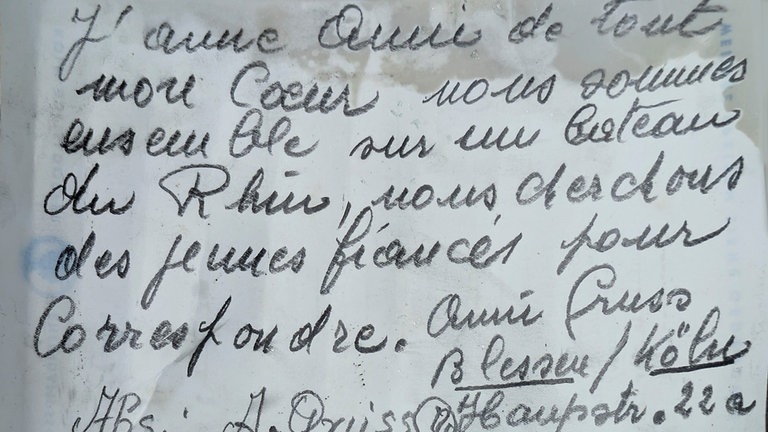 J'aime Anni de tout
mon Cœur nous sommes
ensemble sur un bateau
du Rhin, nous cherchons
des jeunes fiancés pour
Correspondre. Anni
Blessen / Köln
Abs: A. Haupstr. 22a